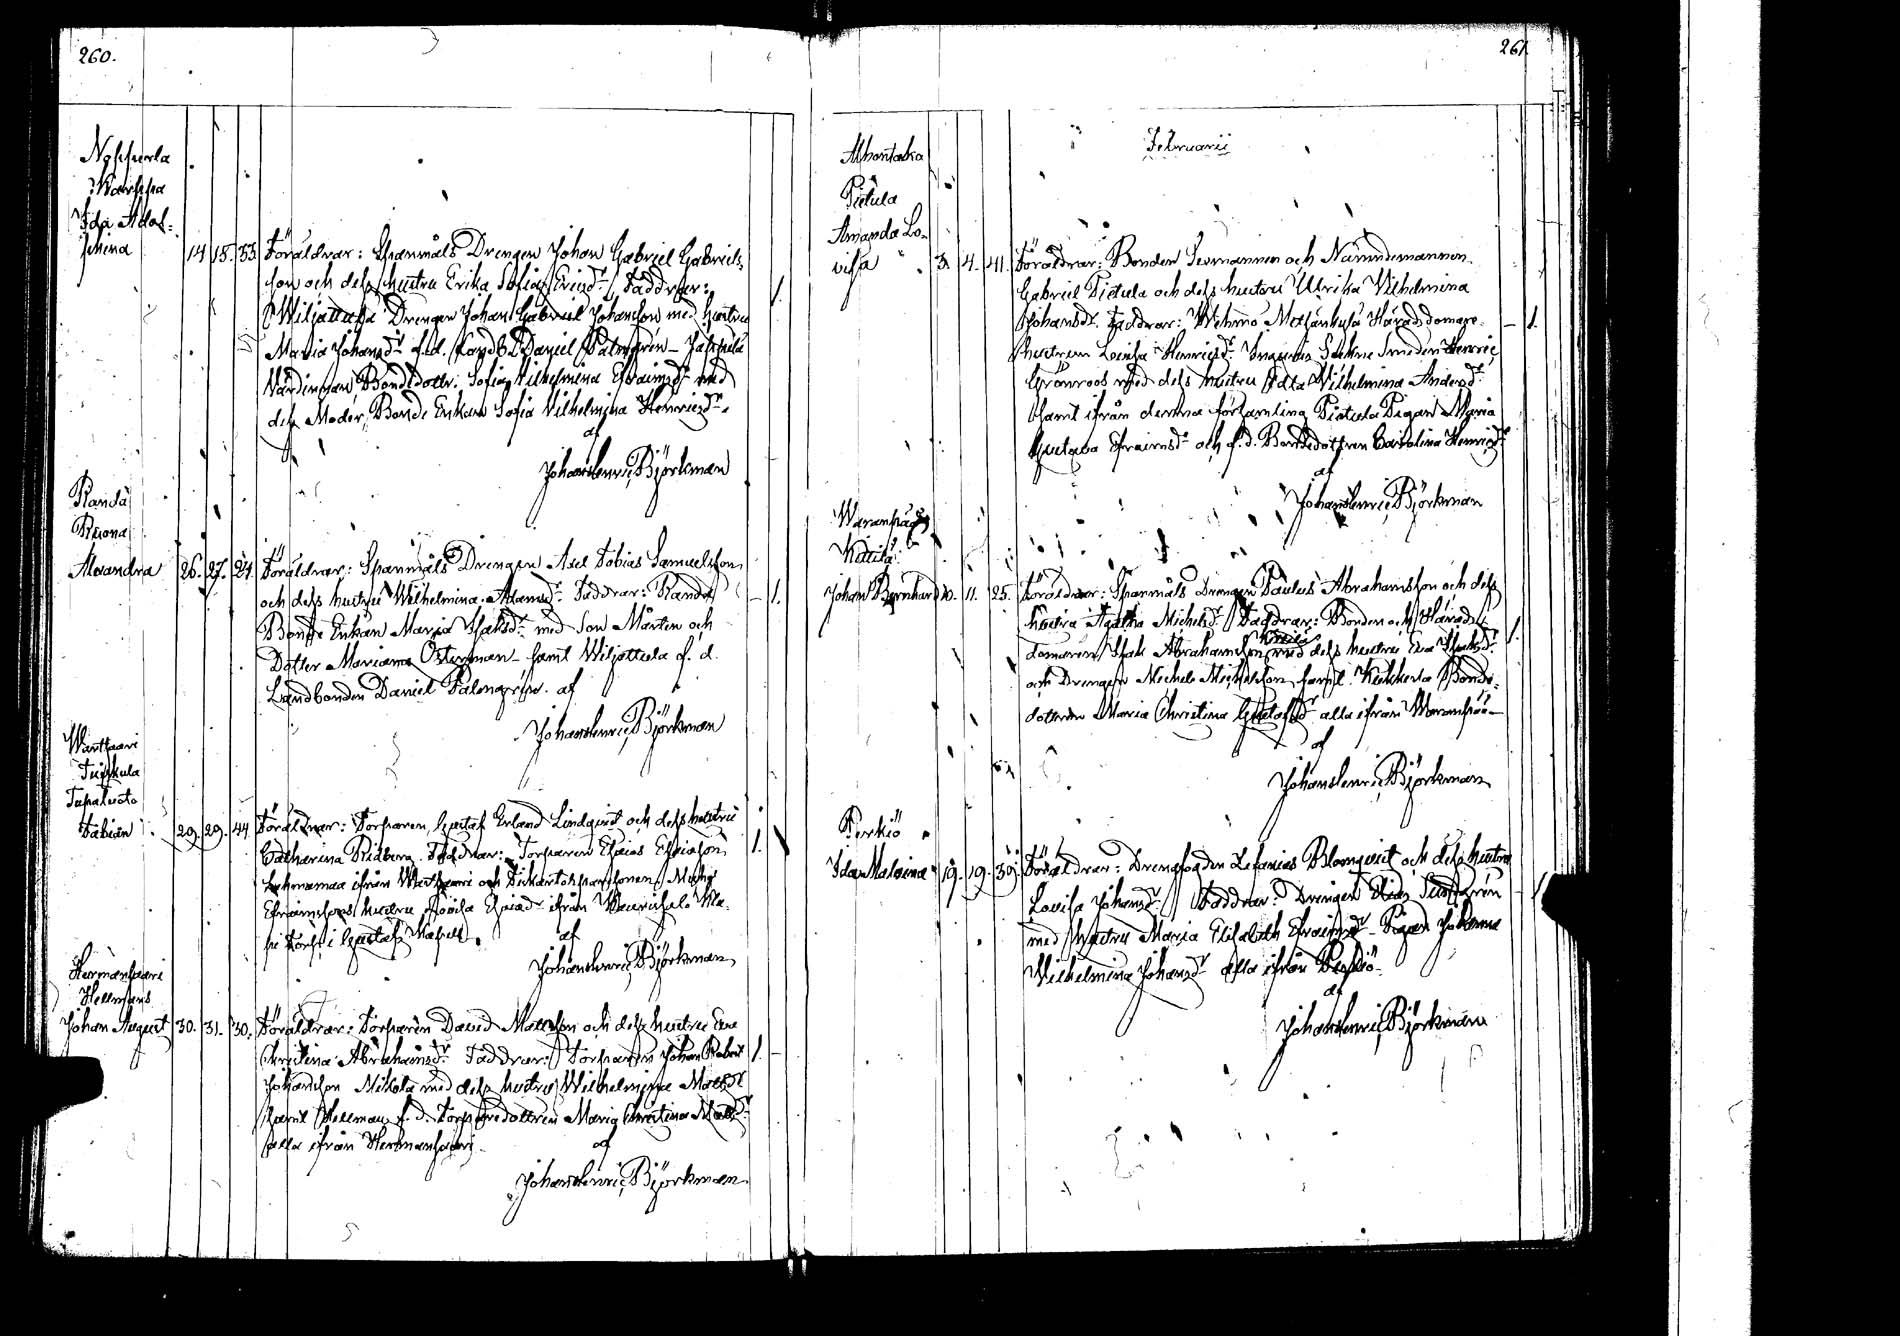 260.
Ida Adol=
phina 14 15. 33. Föräldrar: Spanmåls Drengen Johan Gabriel Gabriels
son och dess hustru Erika Sofia Ericsdr. Faddrar:
Wiljattula Drengen Johan Gabriel Johansson med hustru 1.
Maria Johansdr. f.d. Landb. Daniel Palmgrén –
Värdinnan, Bondedottr. Sofia Vilhelmina Efraimsdr med
dess Moder, Bonde Enkan Sofia Vilhelmina Henricsdr.
af
Johan Henric Björkman
Randa
Ruona
Alexandra 26. 27. 24. Föräldrar: Spanmåls Drengen Axel Tobias Samuelsson
och dess hustru Wilhelmina Adamsdr. Faddrar: Randa – 1.
Bonde Enkan Maria Isaksdr. med Son Mårten och
Dotter Mariana Österman – samt Wiljattula f.d.
Landbonden Daniel Palmgrén. af
Johan Henric Björkman
Wartsaari
Tupaluoto
Fabian 29. 29. 44. Föräldrar: Torparen Gustaf Erland Lindqvist och dess hustru
Catharina Ridberg. Faddrar: Torparen Esaias Esaiasson 1.
Lehmamaa ifrån Wartsaari och
Efraimssons hustru Lovisa Esaiædr ifrån
af
Johan Henric Björkman
Hermansaari
Hellmans
Johan August 30. 31. 30. Föräldrar: Torparen David Mattsson och dess hustru Eva
Christina Abrahamsdr. Faddrar: Torparen Johan Robert 1. –
Johansson Nikola med dess hustru Wilhelmina Mattsdr
samt Hellman f.d. Torparedottren Maria Christina Mattsdr
alla ifrån Hermansaari.
af
Johan Henric Björkman
261
Februarii
Alhontaka
Pietula
Amanda Lo-
visa 3. 4. 41. Föräldrar: Bonden Sexmannen och Nämndemannen
Gabriel Pietula och dess hustru Ulrika Vilhelmina
Johansdr. Faddrar: Wehmo Häradsdomare – 1.
hustrun Lovisa Henricsdr. Smeden Henric
Grönroos med dess hustru Edla Vilhelmina Andersdr.
samt ifrån denna församling Pietula Pigan Maria
Gustava Efraimsdr och f.d. Bondedottren Carolina Henricsdr
af
Johan Henric Björkman
Waranpää
Kittilä
Johan Bernhard 10. 11. 25. Föräldrar: Spanmåls Drengen Paulus Abrahamsson och dess
hustru Agatha Michelsdr. Faddrar: Bonden och Härads
Kittilä
domaren Isak Abrahamsson med dess hustru Eva Isaksdr. 1.
och Drengen Michel Michelsson samt Kukkola Bonde-
dottren Maria Christina Gustafsdr alla ifrån Waranpää –
af
Johan Henric Björkman
Perkiö
Ida Malvina 19. 19. 30. Föräldrar: Drengfogden Zefanias Blomqvist och dess hustru
Lovisa Johansdr. Faddrar: Drengen Elias – 1
med hustru Maria Elisabeth Efraimsdr – Pigan Johanna
Wilhelmina Johansdr alla ifrån Perkiö –
af
Johan Henric Björkman